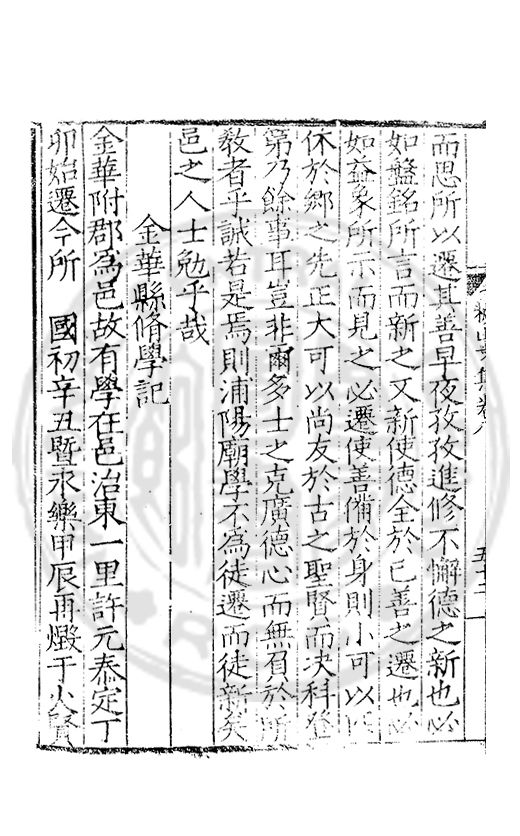 而思所以遷其善早夜孜孜進修不懈德之新也必
如盤銘所言而新之又新使德全於己善之遷也必
如益象所示而見之必遷使善備於身則小可以
休於鄉之先正大可以尚友於古之聖賢而决科登
第乃餘事耳豈非爾多士之克廣德心而無負於所
敎者乎誠若是焉則浦陽廟學不為徒遷而徒新矣
邑之人士勉乎哉
金華縣脩學記
金華附郡為邑故有學在邑治東一里許元泰定丁
卯始遷今所　國初辛丑暨永樂甲辰再燬于火賢